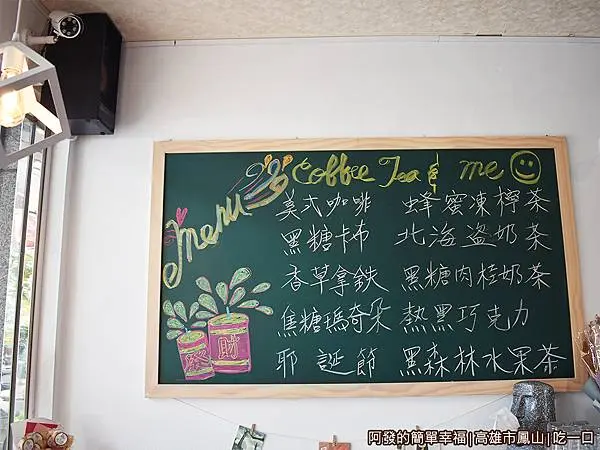 Menu
Coffee Tea & me
美式咖啡 蜂蜜凍檸茶
黑糖卡布 北海盗奶茶
香草拿鉄 黑糖肉桂奶茶
焦糖瑪奇朵 熱黑巧克力
耶誕節 黑森林水果茶
發財
阿發的簡單幸福|高雄市鳳山|吃一口